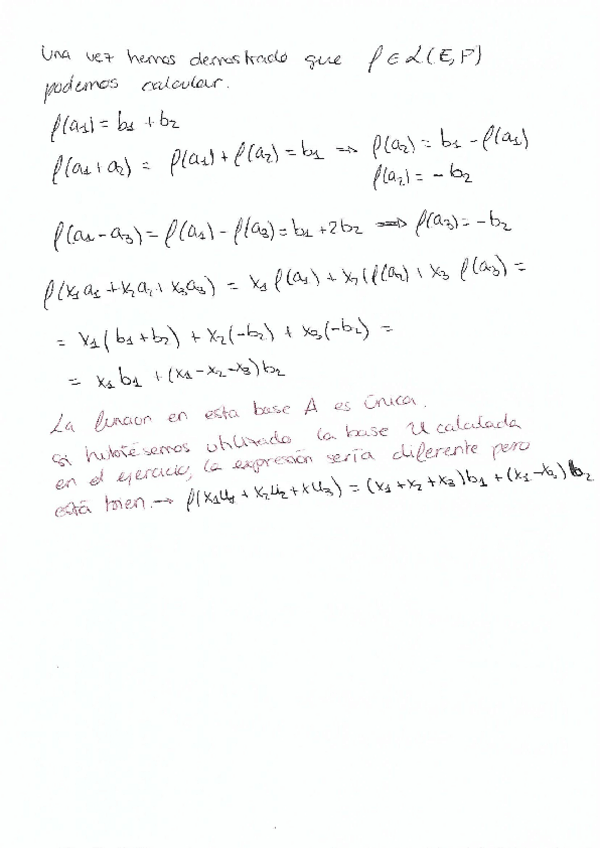 Una vez hemos demostrado que f ∈ L(E,F)
podemos calcular.
f(a1) = b1 + b2
f(a1+a2) = f(a1) + f(a2) = b1 ⟹ f(a2) = b1 - f(a1)
f(a2) = - b2
f(a1-a3) = f(a1) - f(a3) = b1 + 2b2 ⟹ f(a3) = -b2
f(x1a1 + x2a2 + x3a3) = x1 f(a1) + x2 (f(a2) + x3 f(a3) =
= x1(b1+b2) + x2(-b2) + x3(-b2) =
= x1b1 + (x1-x2-x3)b2
La funcion en esta base A es única.
si hubiésemos utilizado la base U calculada
en el ejercicio, la expresión sería diferente pero
está bien. → f(x1u1 + x2u2 + xu3) = (x1+x2+x3)b1 + (x1-x3)b2